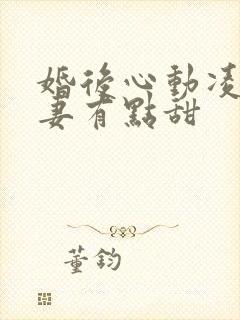 婚後心動凌
妻有點甜
董鈞